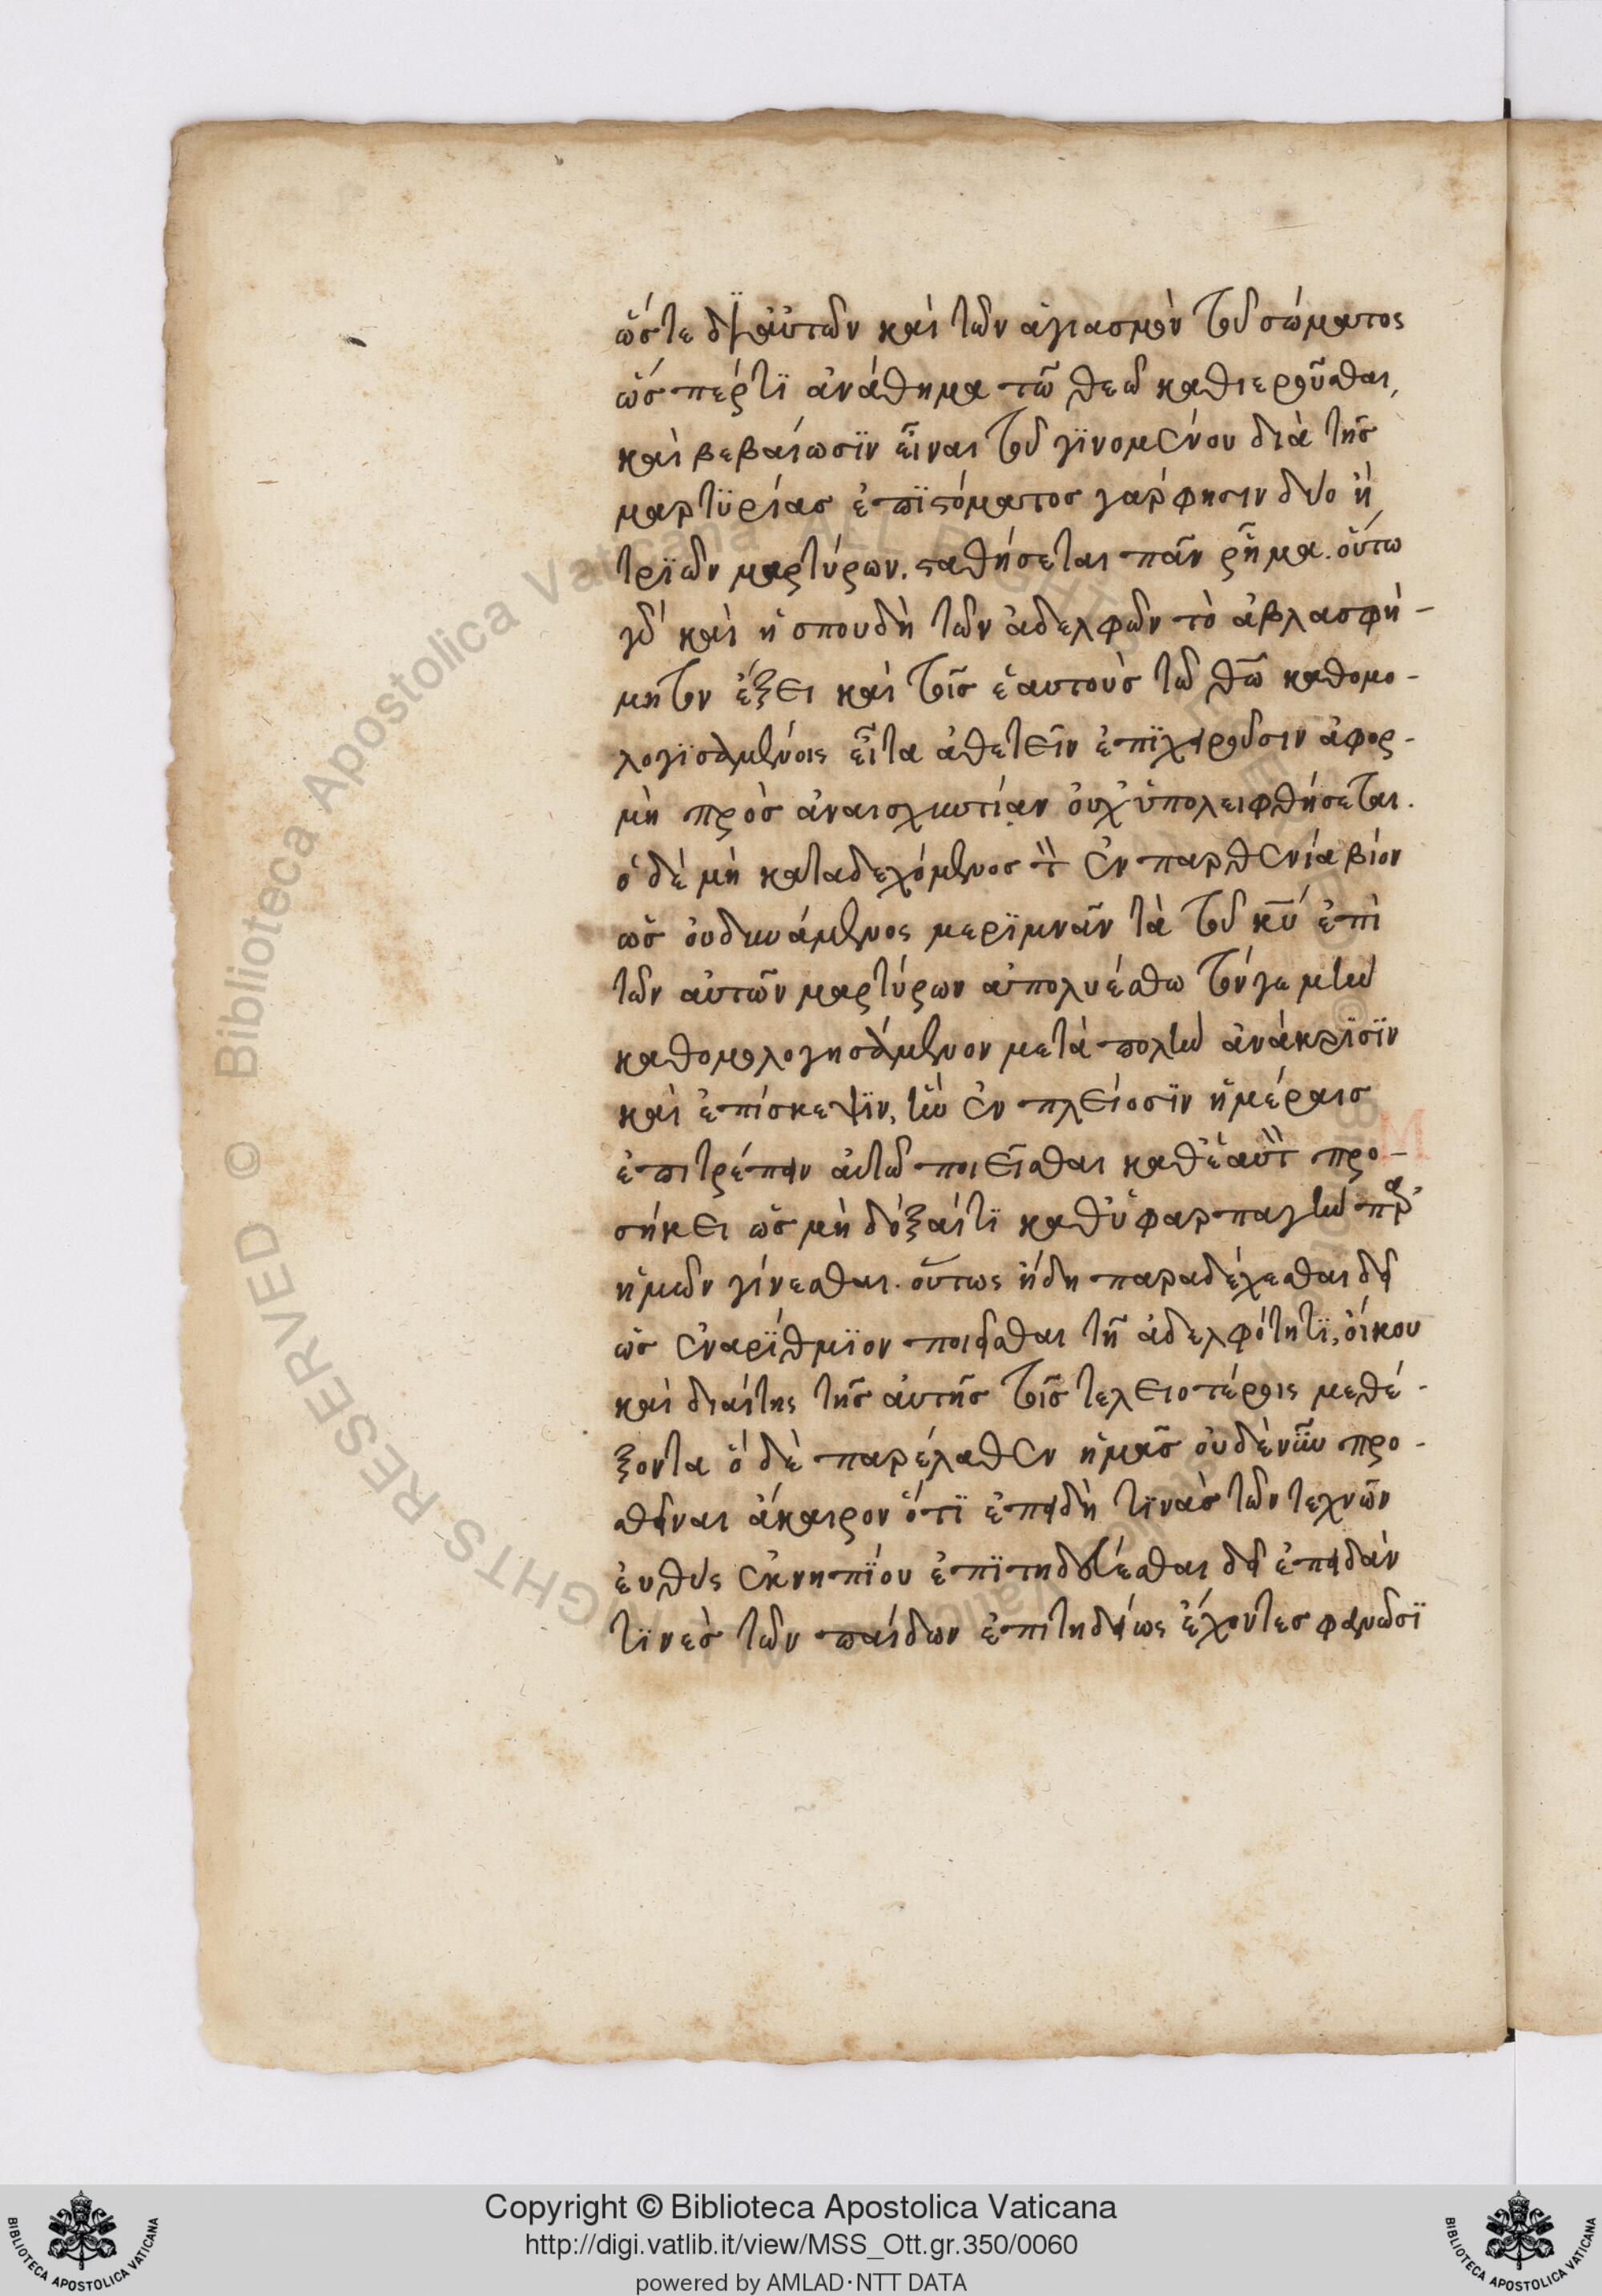 ὥστε δι' αὐτῶν καὶ τῶν ἁγιασμὸν τοῦ σώματος
ὥσπέρτϊ ἀνάθημα τῶ θεῶ καθιεροῦσθαι,
καὶ βεβαίωσϊν εἶναι τοῦ γϊνομένου διὰ τῆς
μαρτϋρίας ἐπϊστόματος γάρ φησιν δύο ἢ
τρϊῶν μαρτύρων. σταθήσεται πᾶν ῥῆμα. οὕτω
γὰρ καὶ ἡ σπουδὴ τῶν ἀδελφῶν τὸ ἀβλασφή-
μητον ἕξει καὶ τοῖς ἑαυτοὺς τῶ θῶ καθομο-
λογϊσαμένοις εἶτα ἀθετεῖν ἐπϊχειροῦσιν ἀφορ-
μὴ πρὸς ἀναισχυντίαν οὐχ ὑπολειφθήσεται.
ὁ δὲ μὴ καταδεχόμενος τὸν ἐν παρθενία βίον
ὡς οὐδυνάμενος μερϊμνᾶν τὰ τοῦ κυ ἐπὶ
τῶν αὐτῶν μαρτύρων ἀπολυέσθω τόνγε μὴν
καθομολογησάμενον μετὰ πολὴν ἀνάκρϊσϊν
καὶ ἐπίσκεψϊν, ἣν ἐν πλείοσϊν ἡμέραις
ἐπιτρέπειν αὐτῶ ποιεῖσθαι καθ' ἑαυτὸν προ-
σήκει ὡς μὴ δόξαί τϊ καθ' ὑφαρπαγὴν παρ'
ἡμῶν γίνεσθαι. οὕτως ἤδη παραδέχεσθαι δεῖ
ὡς ἐναρϊθμϊον ποιεῖσθαι τῆ ἀδελφότητϊ, οἴκου
καὶ διαίτης τῆς αὐτῆς τοῖς τελειοτέροις μεθέ-
ξοντα ὁ δὲ παρέλαθεν ἡμᾶς οὐδὲ νῦν προ-
θεῖναι ἄκαιρον ὅτϊ ἐπειδὴ τϊνὰς τῶν τεχνῶν
εὐθὺς ἐκνηπϊου ἐπϊτηδεύεσθαι δεῖ ἐπειδάν
τϊνες τῶν παίδων ἐπιτηδείως ἔχοντες φανῶσϊ
Copyright © Biblioteca Apostolica Vaticana
http://digi.vatlib.it/view/MSS_Ott.gr.350/0060
powered by AMLAD·NTT DATA